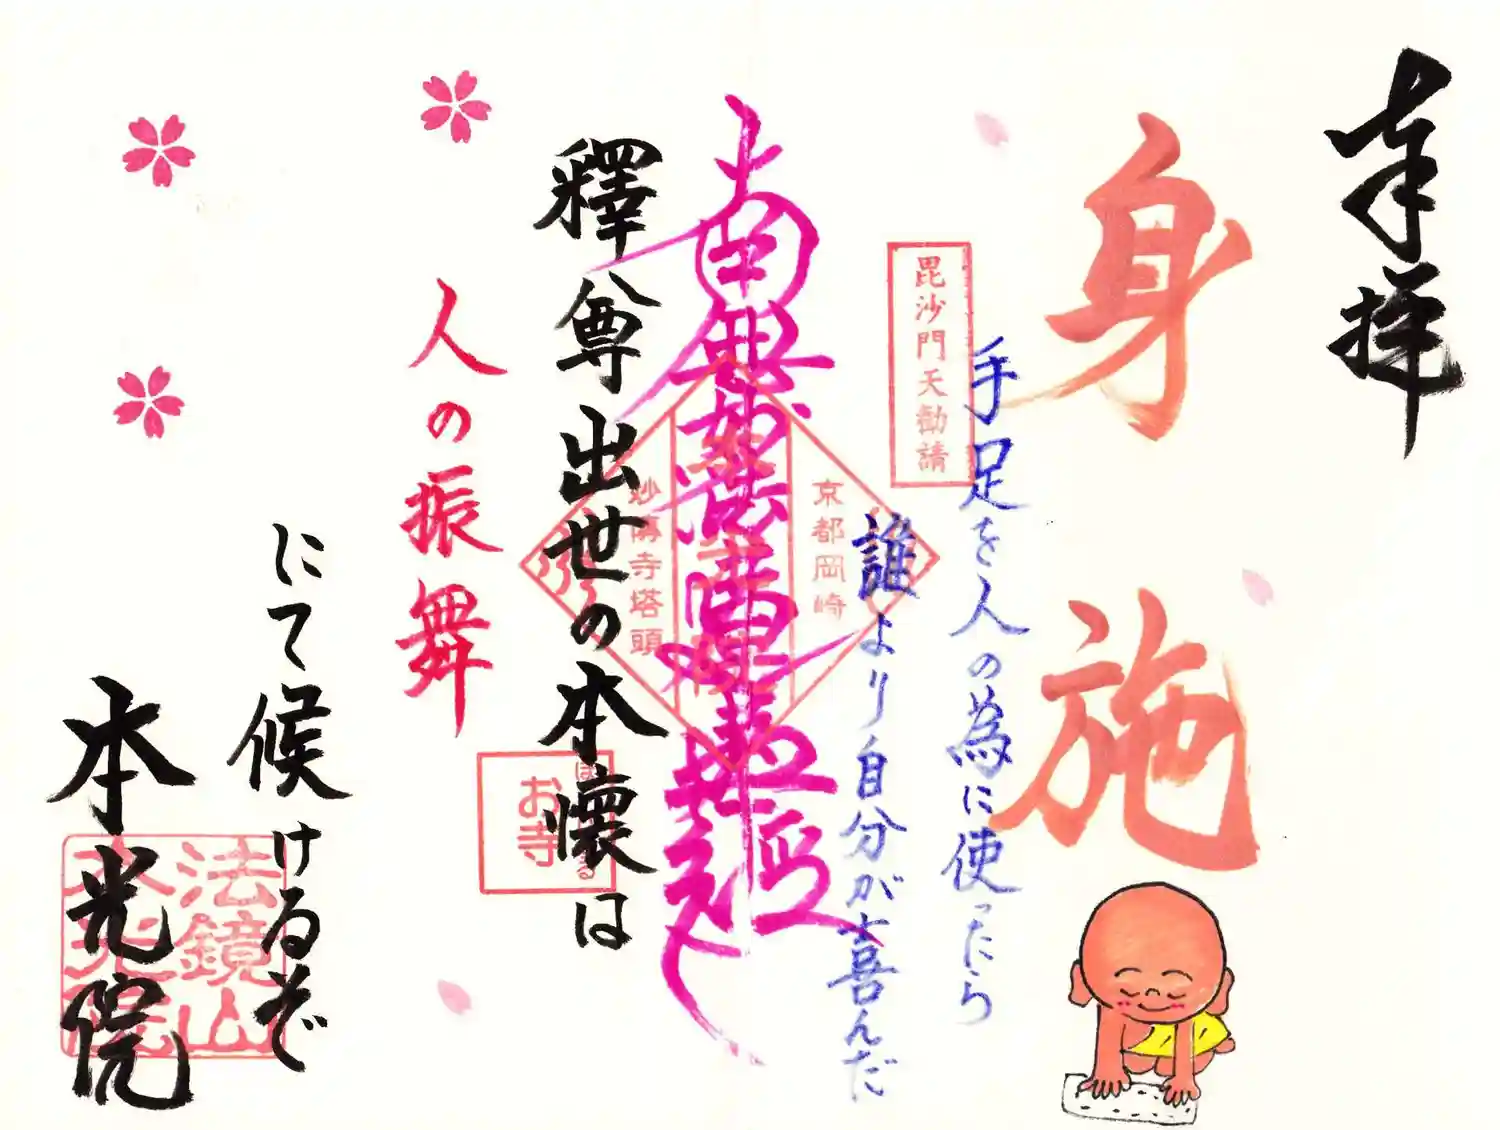 奉拝
身施
手足を人の為に使ったら
誰より自分が喜んだ
毘沙門天勧請
京都岡崎
南無妙法蓮華経
妙傳寺塔頭
釋尊出世の本懐は
お寺
人の振舞
にて候けるぞ
法鏡山
本光院
本光院